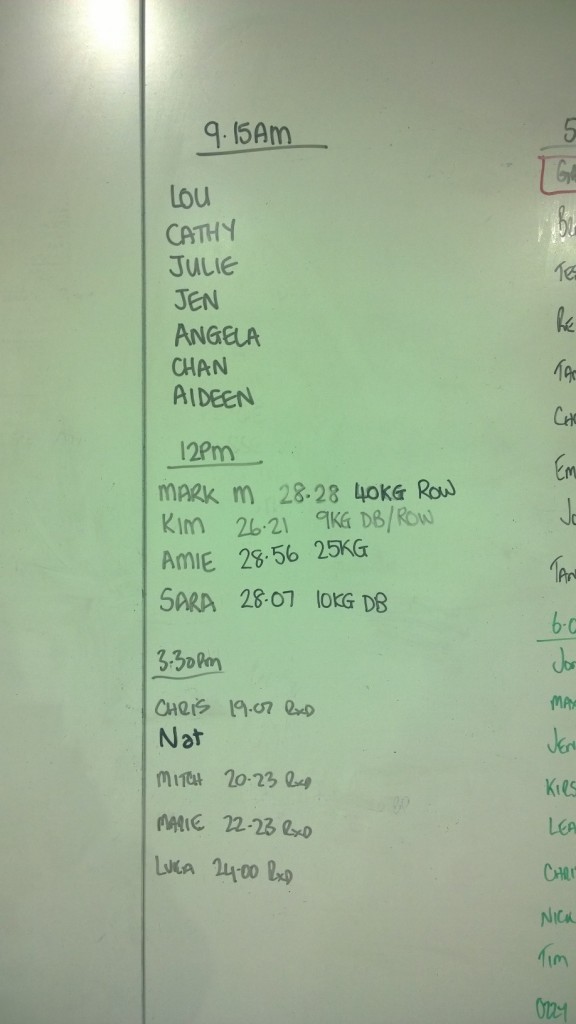 9.15AM
LOU
CATHY
JULIE
JEN
ANGELA
CHAN
AIDEEN
12PM
MARK M 28.28 40KG ROW
KIM 26.21 9KG DB/ROW
AMIE 28.56 25KG
SARA 28.07 10KG DB
3.30PM
CHRIS 19.07 RXD
Nat
MITCH 20.23 RXD
MARIE 22.23 RXD
LUKA 24.00 RXD
5
BL
TES
RE
TA
CH
EM
JO
TAN
6.0
JO
MAX
JEN
KIRS
LEA
CHRI
NICK
TIM
OZZY